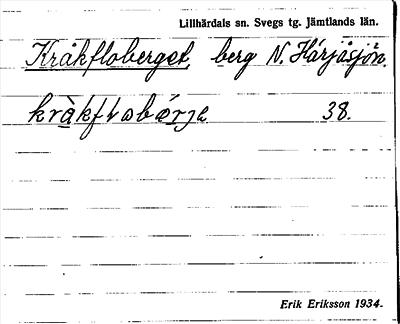 Lillhärdals sn. Svegs tg. Jämtlands län.
Kråkfloberget, berg N. Härjåsjön.
38.
Erik Eriksson 1934.